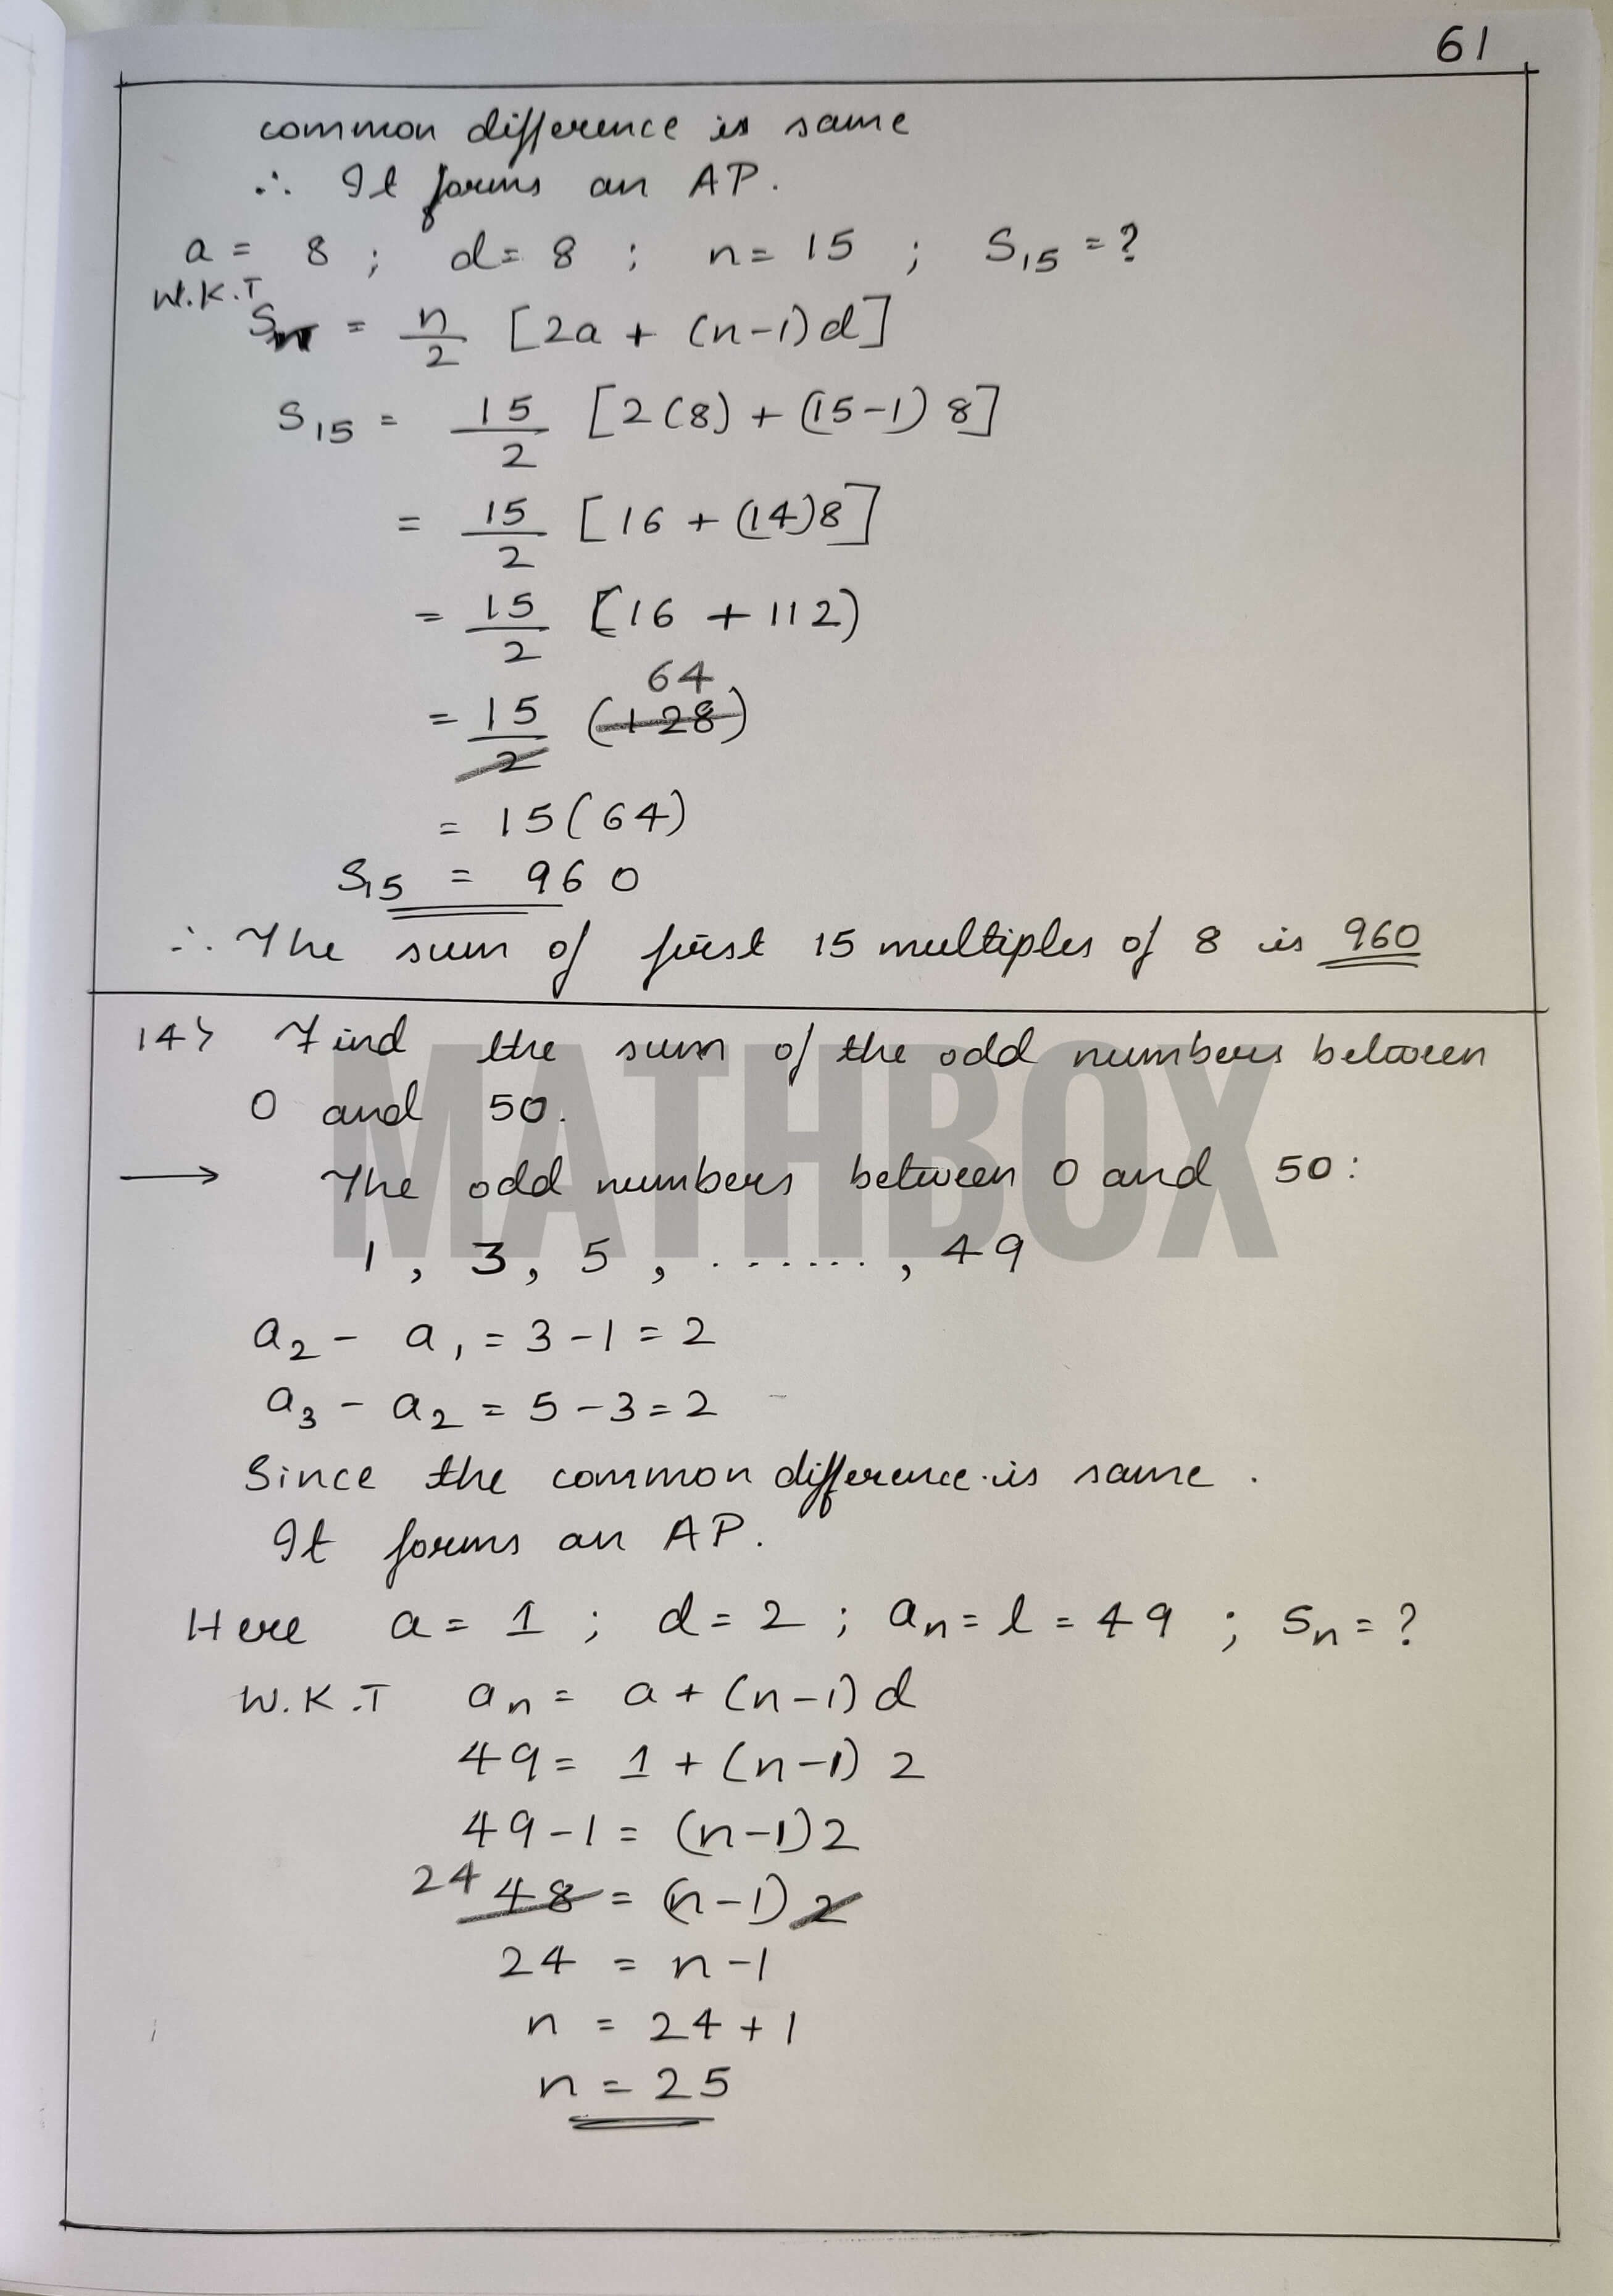 61
common difference is same
∴ It forms an AP.
a = 8 ; d= 8 ; n= 15 ; S15 = ?
W.K.T
Sn = n/2 [2a + (n-1)d]
S15 = 15/2 [2(8) + (15-1) 8]
= 15/2 [16 + (14)8]
= 15/2 [16 + 112)
64
= 15/2 (128)
= 15(64)
S15 = 960
∴ The sum of first 15 multiples of 8 is 960
14> Find the sum of the odd numbers between
0 and 50.
→ The odd numbers between 0 and 50:
1, 3, 5, ......., 49
a2 - a1 = 3-1 = 2
a3 - a2 = 5-3 = 2
Since the common difference is same.
It forms an AP.
Here a = 1 ; d = 2 ; an = l = 49 ; Sn = ?
W.K.T an = a + (n-1) d
49 = 1 + (n-1) 2
49-1 = (n-1)2
24 48 = (n-1) 2
24 = n-1
n = 24 + 1
n = 25
MATHBOX